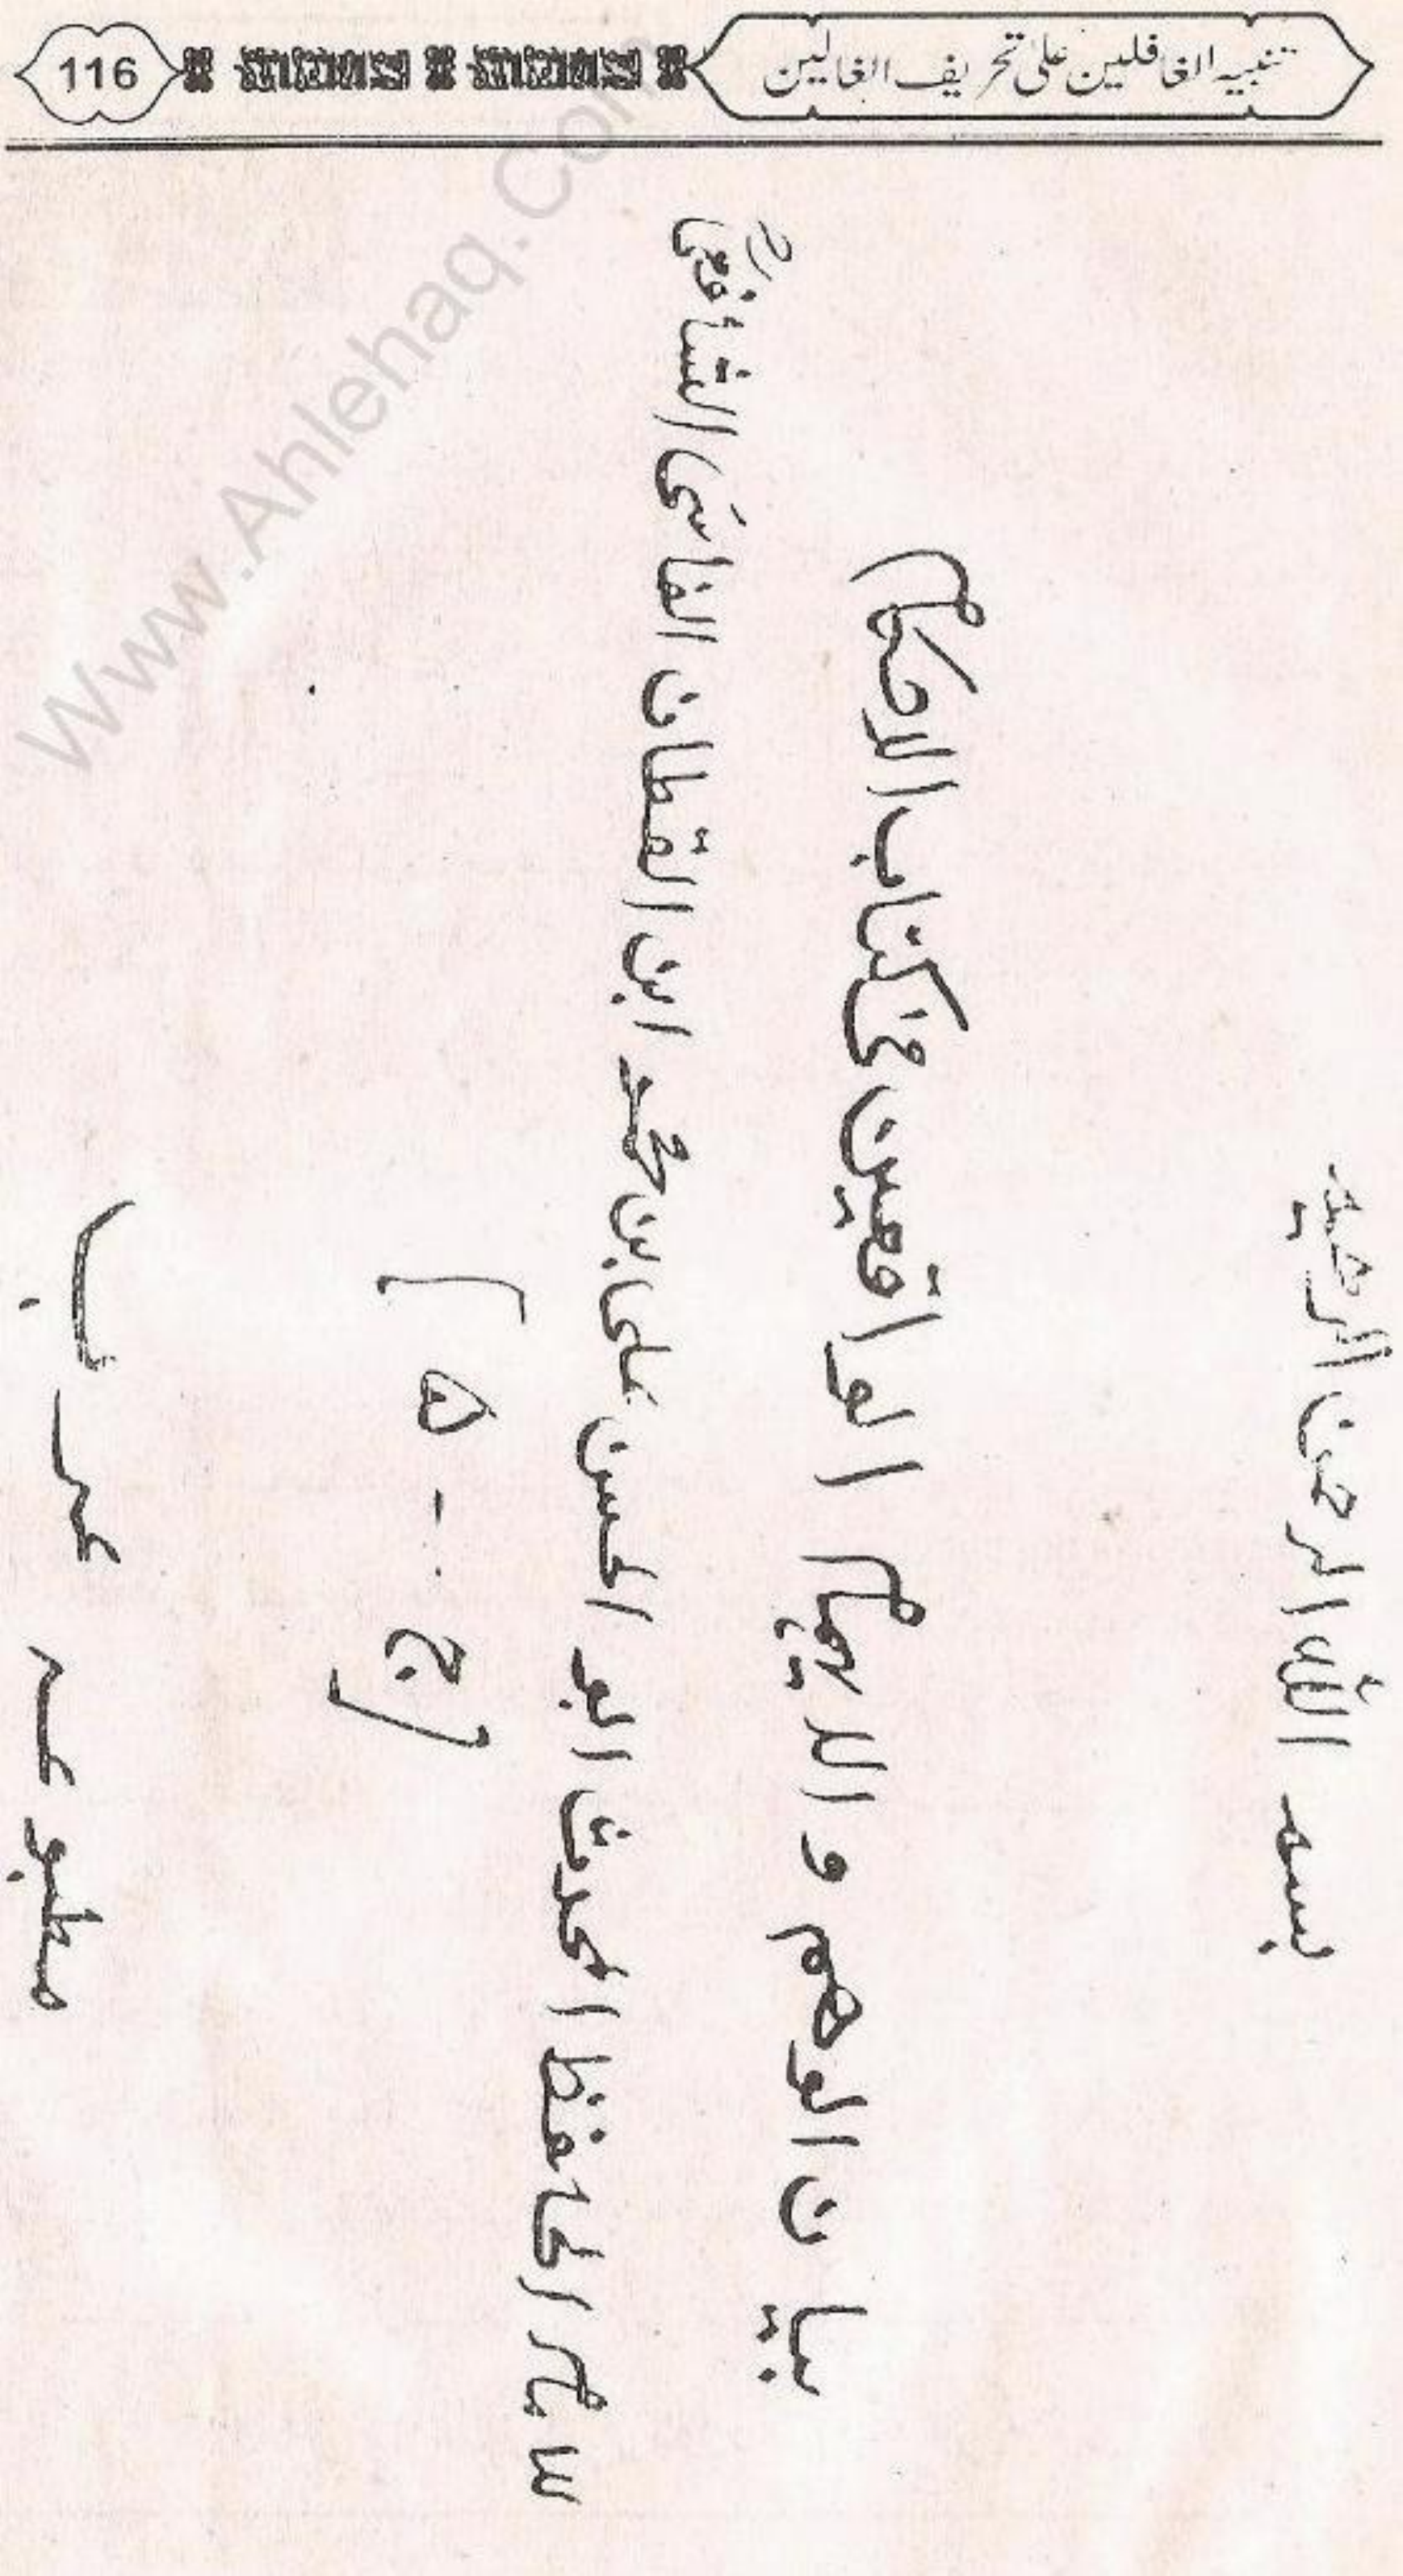 تنبیہ الغافلین علی تحریف الغالین
116
بسم اللہ الرحمن الرحیم
بیان الوھم و الایھام الواقعین فی کتاب الاحکام
للامام الحافظ المحدث ابو الحسن علی ابن محمد ابن القطان الفاسی الشافعیؒ
ج - ۵
مطبوعہ عرب
Www.Ahlehaq.Com